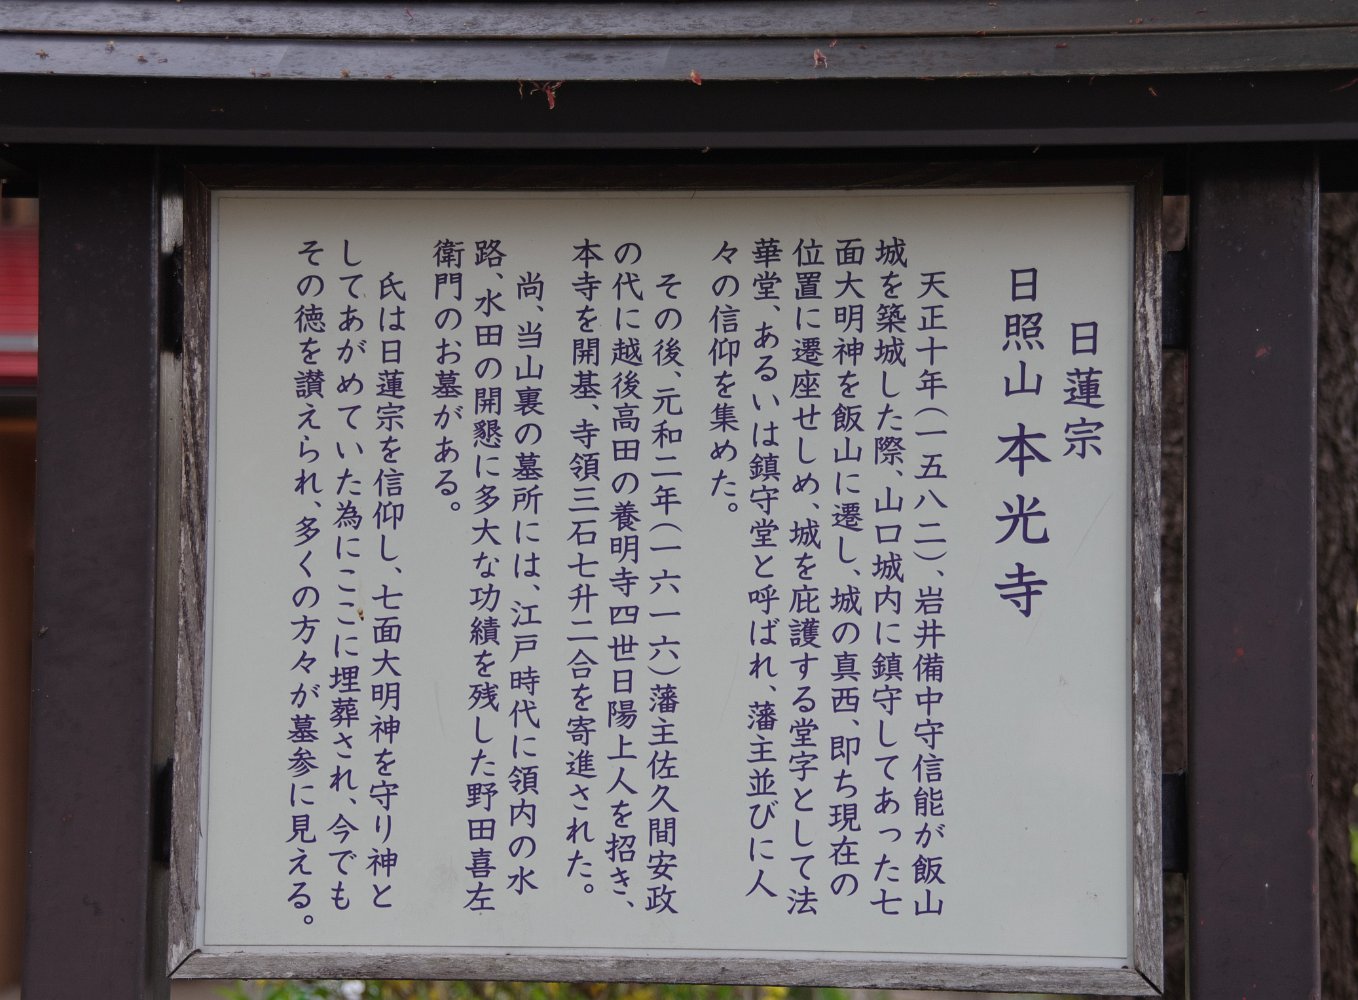 日蓮宗
日照山 本光寺
天正十年（一五八二）、岩井備中守信能が飯山
城を築城した際、山口城内に鎮守してあった七
面大明神を飯山に遷し、城の真西、即ち現在の
位置に遷座せしめ、城を庇護する堂字として法
華堂、あるいは鎮守堂と呼ばれ、藩主並びに人
々の信仰を集めた。
その後、元和二年（一六一六）藩主佐久間安政
の代に越後高田の養明寺四世日陽上人を招き、
本寺を開基、寺領三石七升二合を寄進された。
尚、当山裏の墓所には、江戸時代に領内の水
路、水田の開懇に多大な功績を残した野田喜左
衛門のお墓がある。
氏は日蓮宗を信仰し、七面大明神を守り神と
してあがめていた為にここに埋葬され、今でも
その徳を讃えられ、多くの方々が墓参に見える。